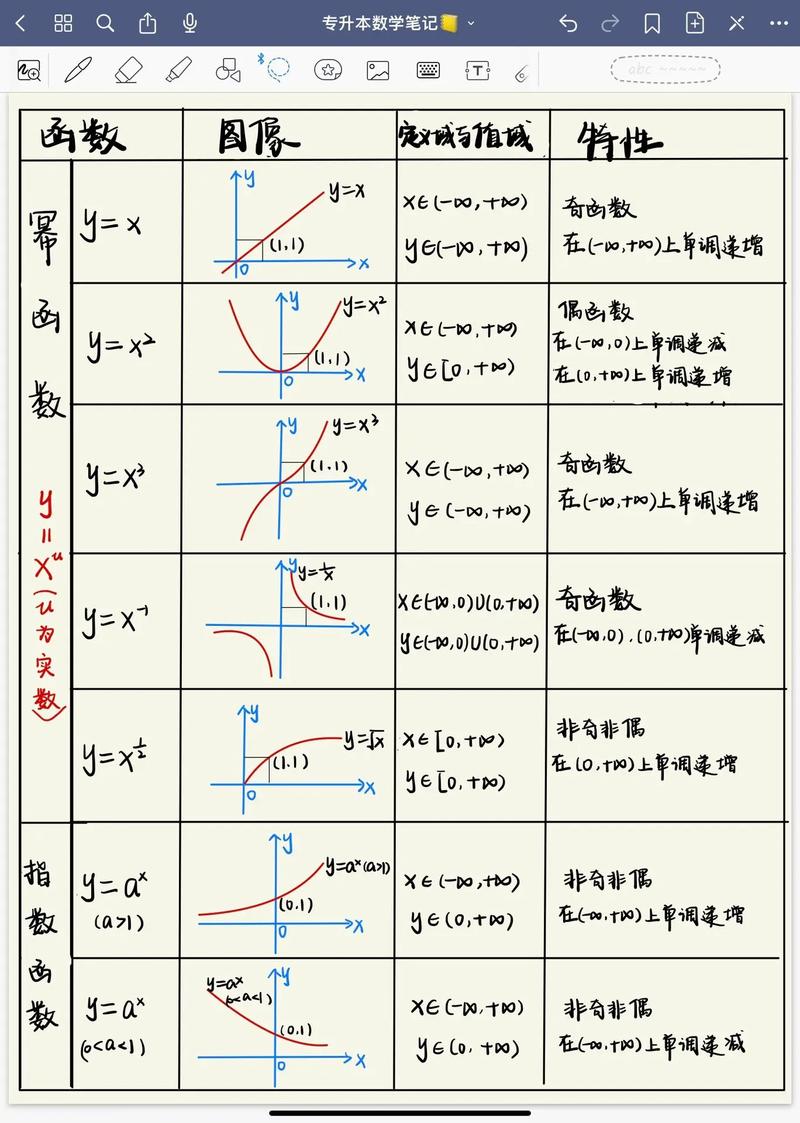 专升本数学笔记
abc
T
函数 图像 定义域与值域 特性
幂函数
y=x^u(u为实数)
y=x
y
y=x
(1,1)
0
x
x∈(-∞,+∞)
y∈(-∞,+∞)
奇函数
在(-∞,+∞)上单调递增
y=x²
y
y=x²
(1,1)
0
x
x∈(-∞,+∞)
y∈[0,+∞)
偶函数
在(-∞,0)上单调递减
在(0,+∞)上单调递增
y=x³
y
y=x³
(1,1)
0
x
x∈(-∞,+∞)
y∈(-∞,+∞)
奇函数
在(-∞,+∞)上单调递增
y=x⁻¹
y
y=1/x
(1,1)
x
x∈(-∞,0)∪(0,+∞)
y∈(-∞,0)∪(0,+∞)
奇函数
在(-∞,0),(0,+∞)单调递减
y=x^½
y
y=√x
(1,1)
0
x
x∈[0,+∞)
y∈[0,+∞)
非奇非偶
在(0,+∞)上单调递增
指数函数
y=aˣ
(a>1)
y
y=aˣ(a>1)
(0,1)
0
x
x∈(-∞,+∞)
y∈(0,+∞)
非奇非偶
在(-∞,+∞)上单调递增
y=aˣ
(0<a<1)
y
y=aˣ
(0<a<1)
(0,1)
0
x
x∈(-∞,+∞)
y∈(0,+∞)
非奇非偶
在(-∞,+∞)上单调递减